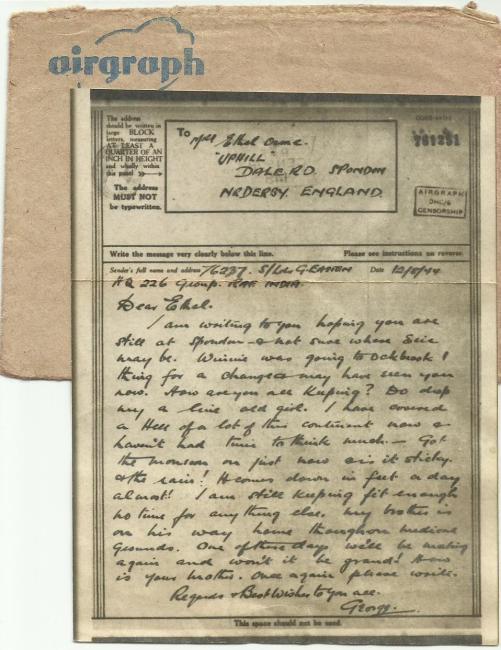 airgraph
The address
should be written in
large BLOCK
letters, measuring
AT LEAST A
QUARTER OF AN
INCH IN HEIGHT
and wholly within
this panel
The address
MUST NOT
be typewritten.
To Ethel
"UPHILL"
DALE RD. SPONDON
NR DERBY. ENGLAND.
781251
AIRGRAPH
CENSORSHIP
Write the message very clearly below this line. Please see instructions on reverse.
Sender's full name and address 76237. S/Ldr G. EASTON Date 12/8/44
HQ 226 Group. RAF INDIA.
Dear Ethel.
I am writing to you hoping you are
still at Spondon & not sure where
may be. Winnie was going to Ockbrook I
think for a change & may have seen you
now. How are you all keeping? Do drop
me a line old girl. I have covered
a Hell of a lot of this continent now &
haven't had time to think much. — Got
the monsoon on just now & is it sticky.
& the rain! It comes down in feet a day
almost! I am still keeping fit enough
no time for anything else. My brother is
on his way home through medical
Grounds. One of these days we'll be meeting
again and won't it be grand! How
is your mother. Once again please write.
Regards & Best Wishes to you all.
This space should not be used.